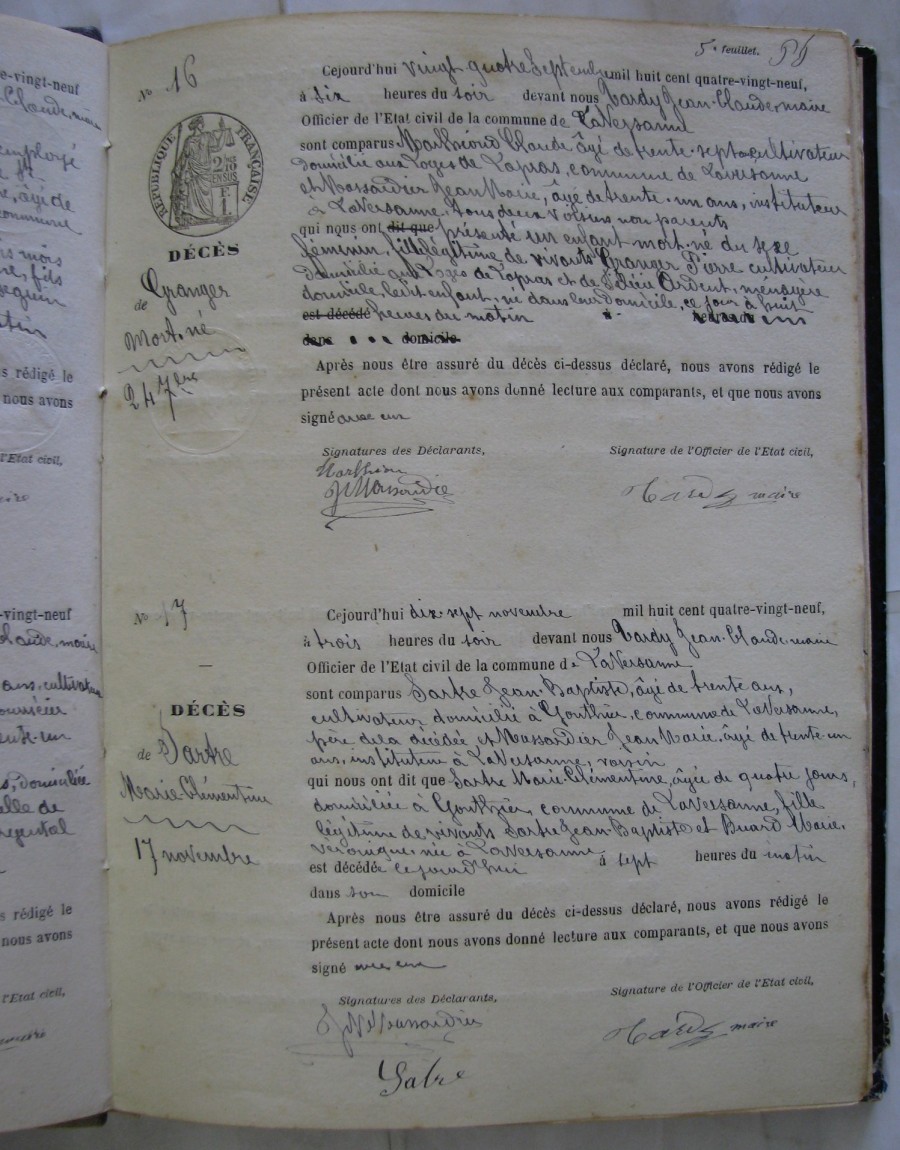 e-vingt-neuf
Claude, maire
employé
, âgé de
commune
is mois
re, fils
s rédigé le
nous avons
l'Etat civil,
maire
-vingt-neuf
Claude, maire
ans, cultivateur
s, domiciliée
elle de
s rédigé le
nous avons
l'Etat civil,
5e feuillet.
No 16
RÉPUBLIQUE FRANÇAISE
DÉCÈS
de Granger
Mort-né
24 7bre
Cejourd'hui vingt quatre Septembre mil huit cent quatre-vingt-neuf,
à six heures du soir devant nous Tardy Jean-Claude, maire
Officier de l'Etat civil de la commune de La Versanne
sont comparus Mathioud Claude âgé de trente-sept ans cultivateur
domicilié aux Loges de Lapras, commune de Laversanne
et Massardier Jean Marie, âgé de trente-un ans, instituteur
à La Versanne, tous deux voisins non parents
qui nous ont dit que présenté un enfant mort-né du sexe
féminin, fille légitime de vivants Granger Pierre cultivateur
domicilié aux Loges de Lapras et de Ardent, ménagère
domicile, ledit enfant, né dans leur domicile, ce jour à huit
est décédé heures du matin
dans domicile
Après nous être assuré du décès ci-dessus déclaré, nous avons rédigé le
présent acte dont nous avons donné lecture aux comparants, et que nous avons
signé avec eux
Signatures des Déclarants,
Signature de l'Officier de l'Etat civil,
JMassardier
Tardy maire
No 17
DÉCÈS
de Sartre
Marie-Clémentine
17 novembre
Cejourd'hui dix-sept novembre mil huit cent quatre-vingt-neuf,
à trois heures du soir devant nous Tardy Jean-Claude maire
Officier de l'Etat civil de la commune de La Versanne
sont comparus Sartre Jean-Baptiste, âgé de trente ans,
cultivateur domicilié à Gonthier, commune de La Versanne,
père de la décédée et Massardier Jean Marie, âgé de trente-un
ans, instituteur à La Versanne, voisin
qui nous ont dit que Sartre Marie-Clémentine, âgée de quatre jours,
domiciliée à Gonthier, commune de La Versanne, fille
légitime de vivants Sartre Jean-Baptiste et Buard Marie-
Véronique, née à La Versanne
est décédée cejourd'hui à sept heures du matin
dans son domicile
Après nous être assuré du décès ci-dessus déclaré, nous avons rédigé le
présent acte dont nous avons donné lecture aux comparants, et que nous avons
signé avec eux
Signatures des Déclarants,
Signature de l'Officier de l'Etat civil,
JMassardier
Tardy maire
Satre